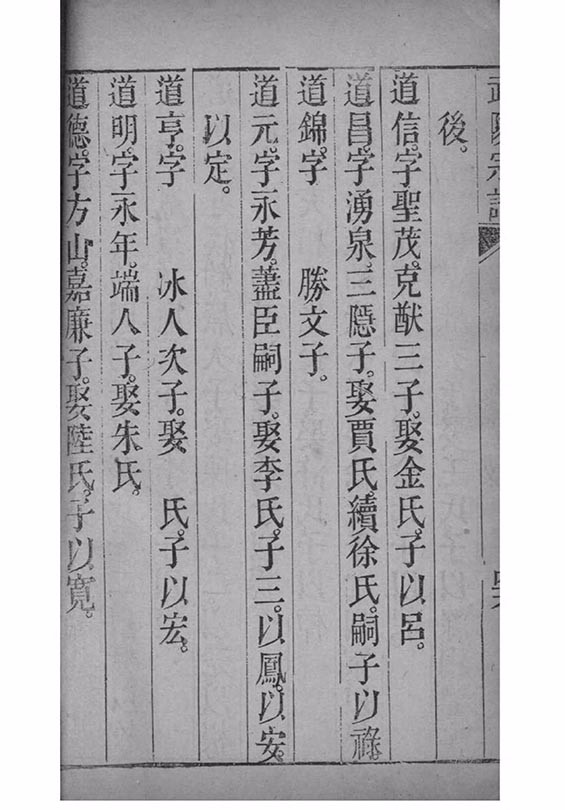 武陵宗譜
後。
道信。字聖茂。克猷三子。娶金氏。子以呂。
道昌。字湧泉。三隱子。娶賈氏。續徐氏。嗣子以祿。
道錦。字　勝文子。
道元。字永芳。藎臣嗣子。娶李氏。子三。以鳳。以安。
以定。
道亨。字　冰人次子。娶　氏。子以宏。
道明。字永年。端人子。娶朱氏。
道德。字方山。嘉廉子。娶陸氏。子以寬。